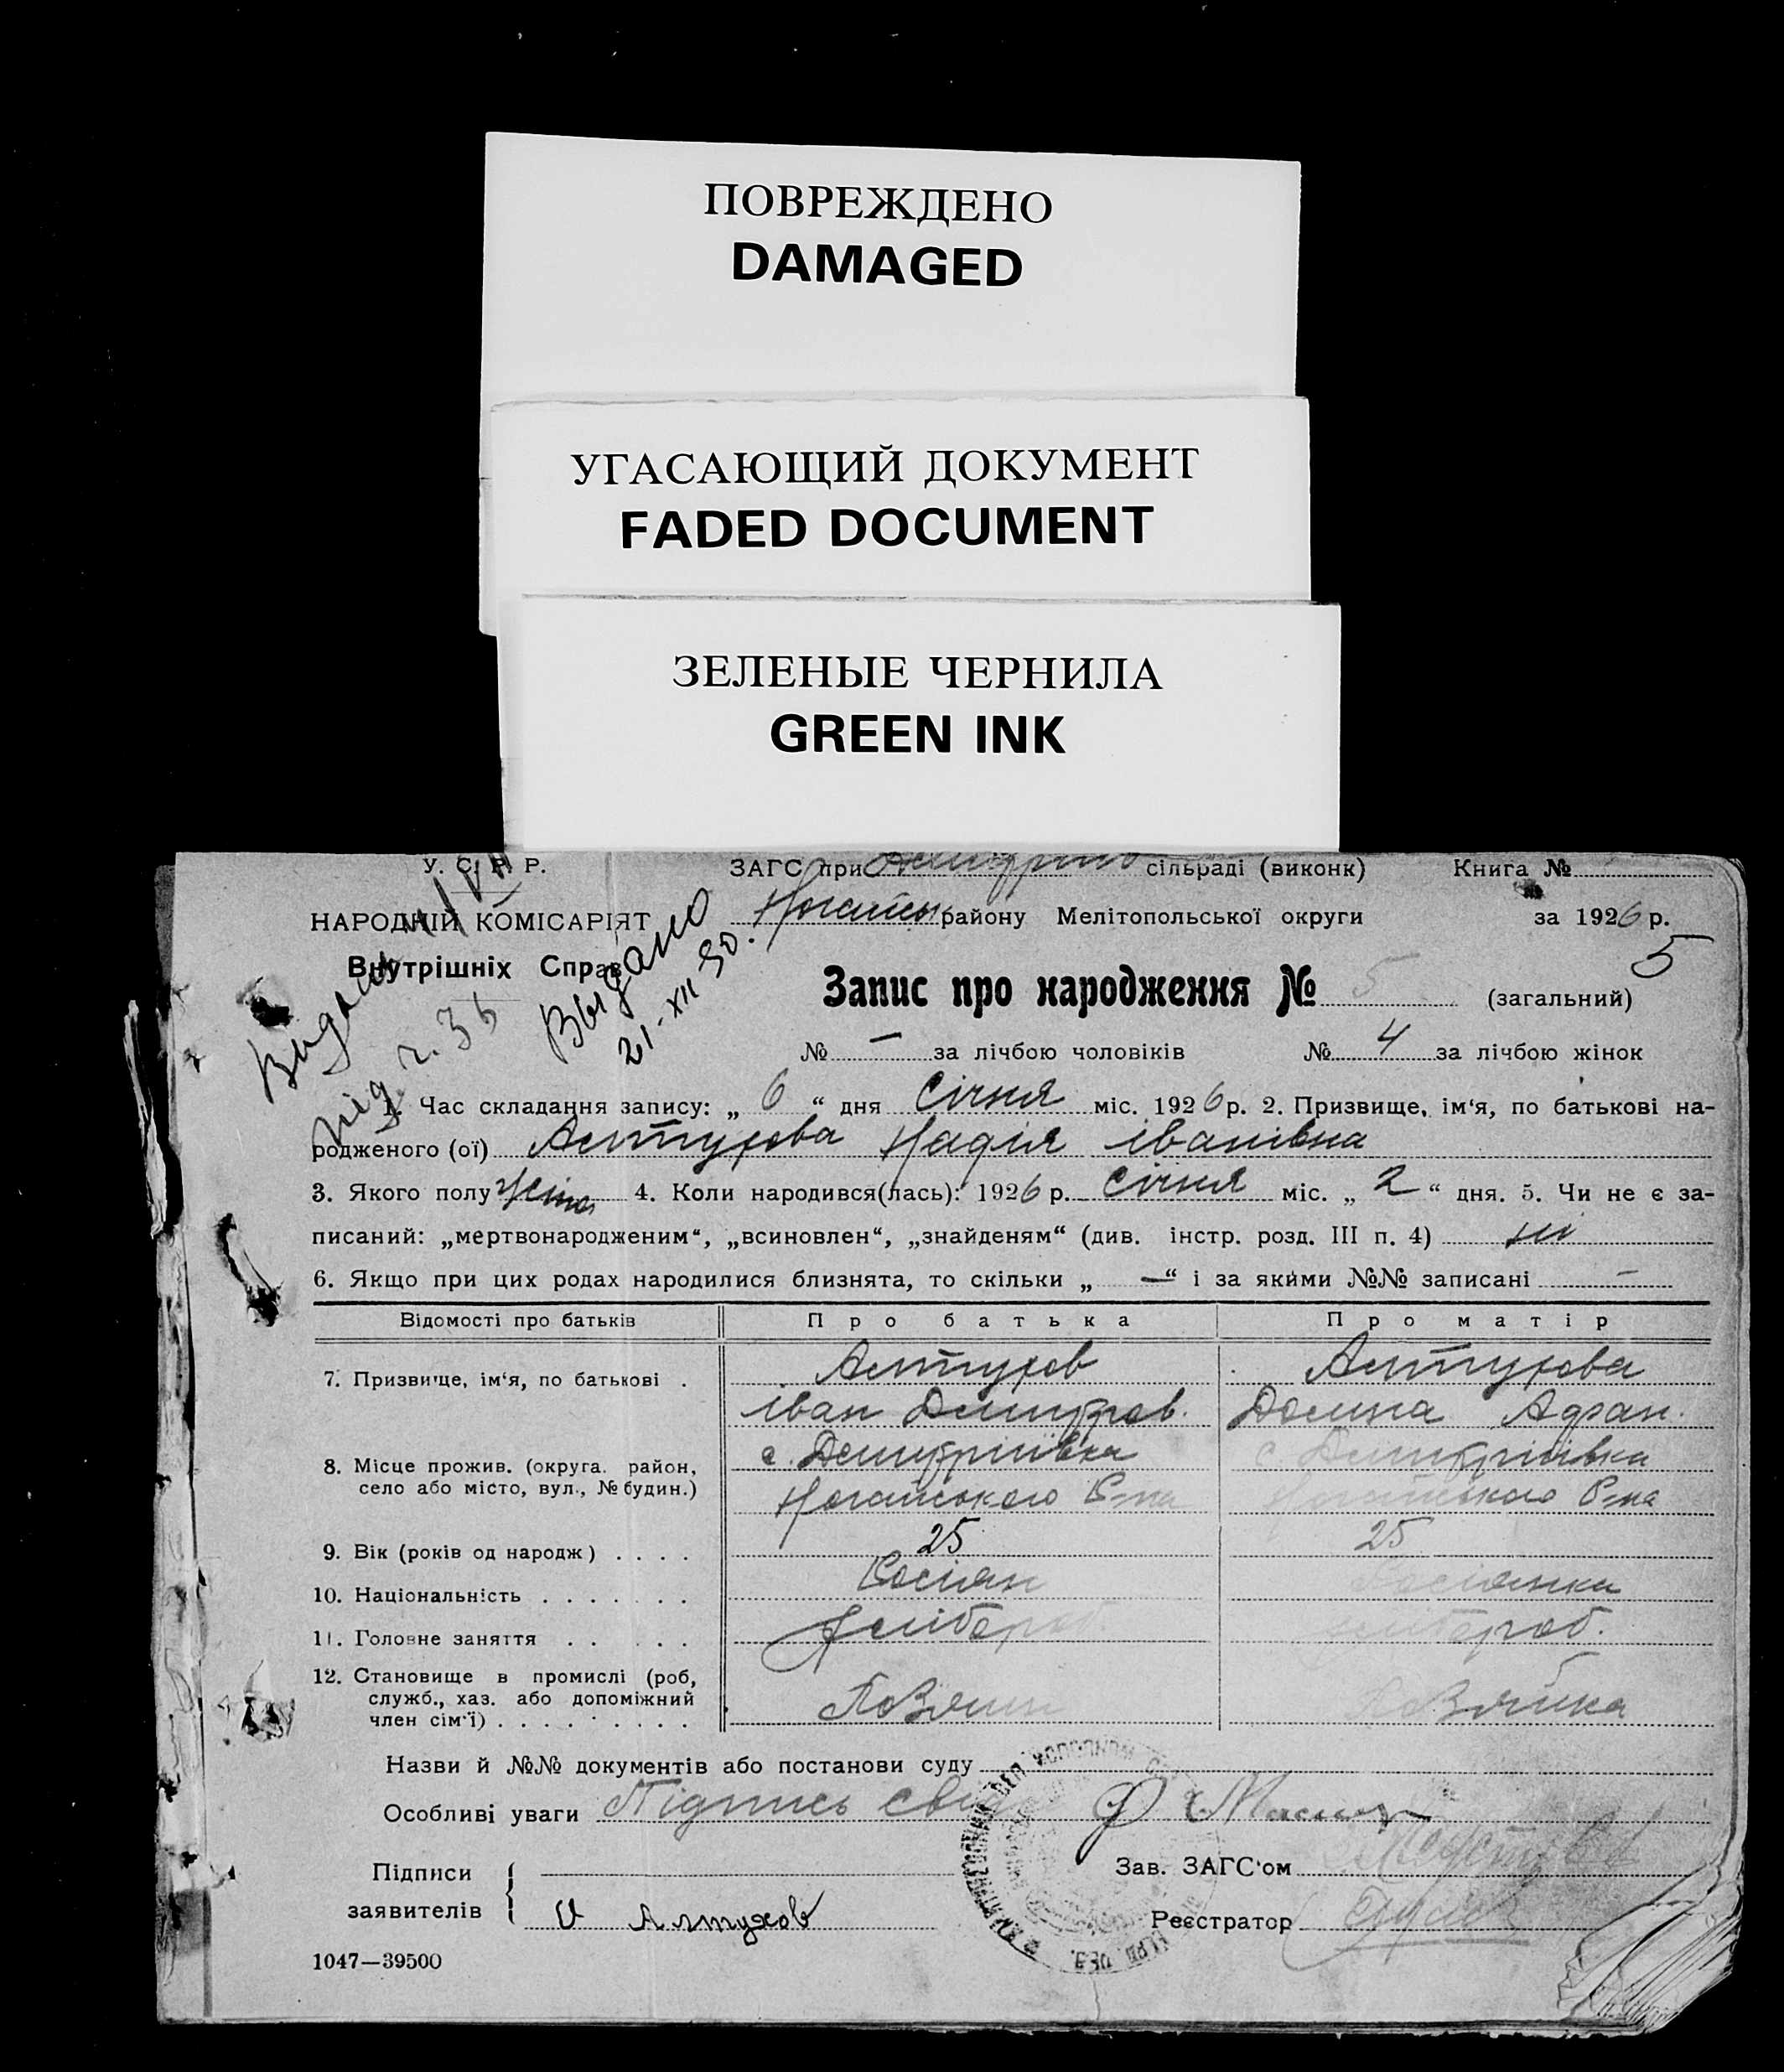 ПОВРЕЖДЕНО
DAMAGED
УГАСАЮЩИЙ ДОКУМЕНТ
FADED DOCUMENT
ЗЕЛЕНЫЕ ЧЕРНИЛА
GREEN INK
У. С. Р. Р. ЗАГС при сільраді (виконк) Книга №
НАРОДНІЙ КОМІСАРІЯТ району Мелітопольської округи за 1926 р.
Внутрішніх Справ
5
Выдано
21-XII 50.
Запис про народження № 5 (загальний)
№ — за лічбою чоловіків № 4 за лічбою жінок
1. Час складання запису: „ 6 “ дня Січня міс. 1926 р. 2. Призвище, ім‘я, по батькові на-
родженого (ої) Алтухова Надія Іванівна
3. Якого полу 4. Коли народився(лась): 1926 р. Січня міс. „ 2 “ дня. 5. Чи не є за-
писаний: „мертвонародженим“, „всиновлен“, „знайденям“ (див. інстр. розд. III п. 4) ні
6. Якщо при цих родах народилися близнята, то скільки „ — “ і за якими №№ записані —
Відомості про батьків Про батька Про матір
7. Призвище, ім‘я, по батькові . Алтухов Алтухова
Іван Дмитров. Домна
8. Місце прожив. (округа. район, с. Дмитріївка с Дмитріївка
село або місто, вул., № будин.) Ногайського Р-на Ногайського Р-на
9. Вік (років од народж) . . . . 25 25
10. Національність . . . . . . . Росіян Росіянка
11. Головне заняття . . . . . Хлібороб. Хлібороб.
12. Становище в промислі (роб,
служб., хаз. або допоміжний
член сім‘ї) . . . . . . . . .
Назви й №№ документів або постанови суду
Особливі уваги Підпись
Підписи Зав. ЗАГС‘ом
заявителів И Алтухов Реєстратор
1047—39500